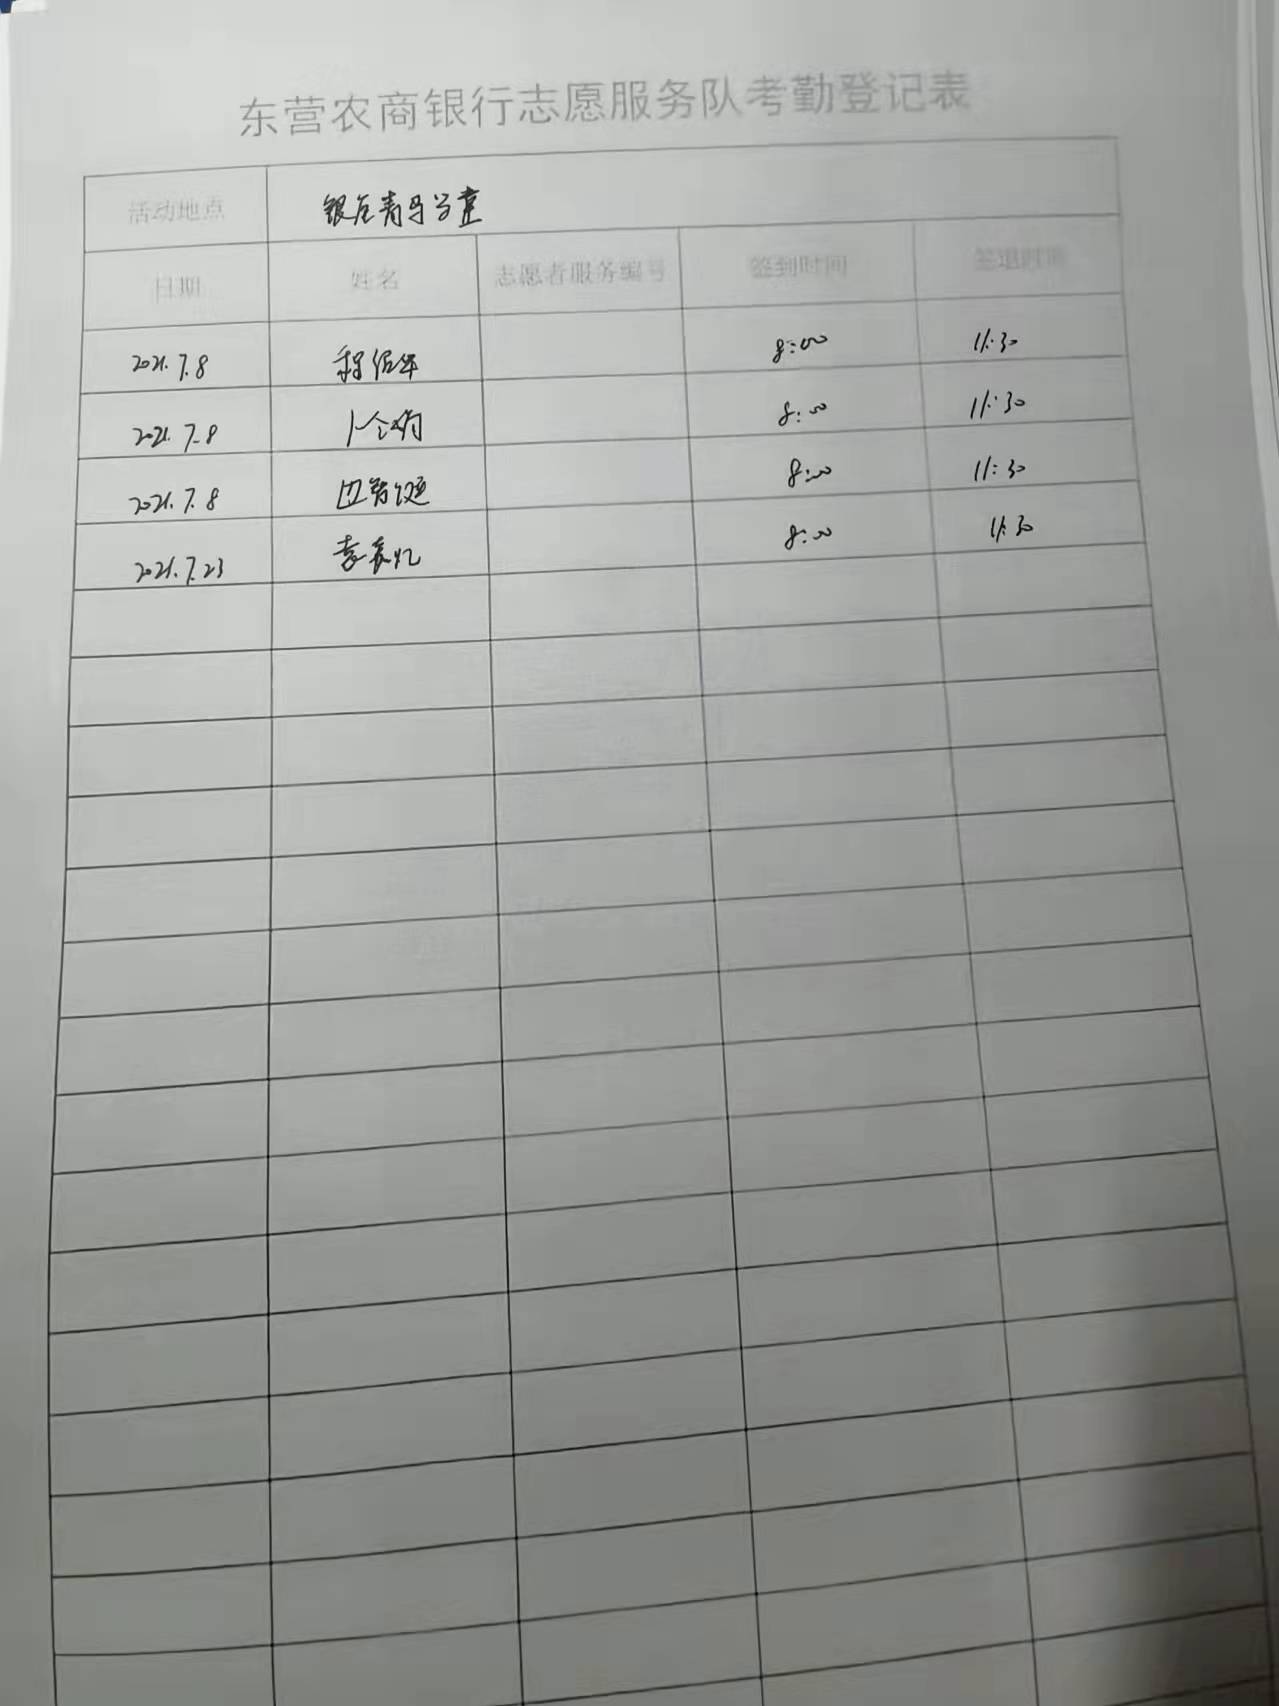 东营农商银行志愿服务队考勤登记表
活动地点 银座青马学堂
日期 姓名 志愿者服务编号 签到时间 签退时间
2021.7.8 8:00 11:30
2021.7.8 8:00 11:30
2021.7.8 8:00 11:30
2021.7.23 8:00 11:30